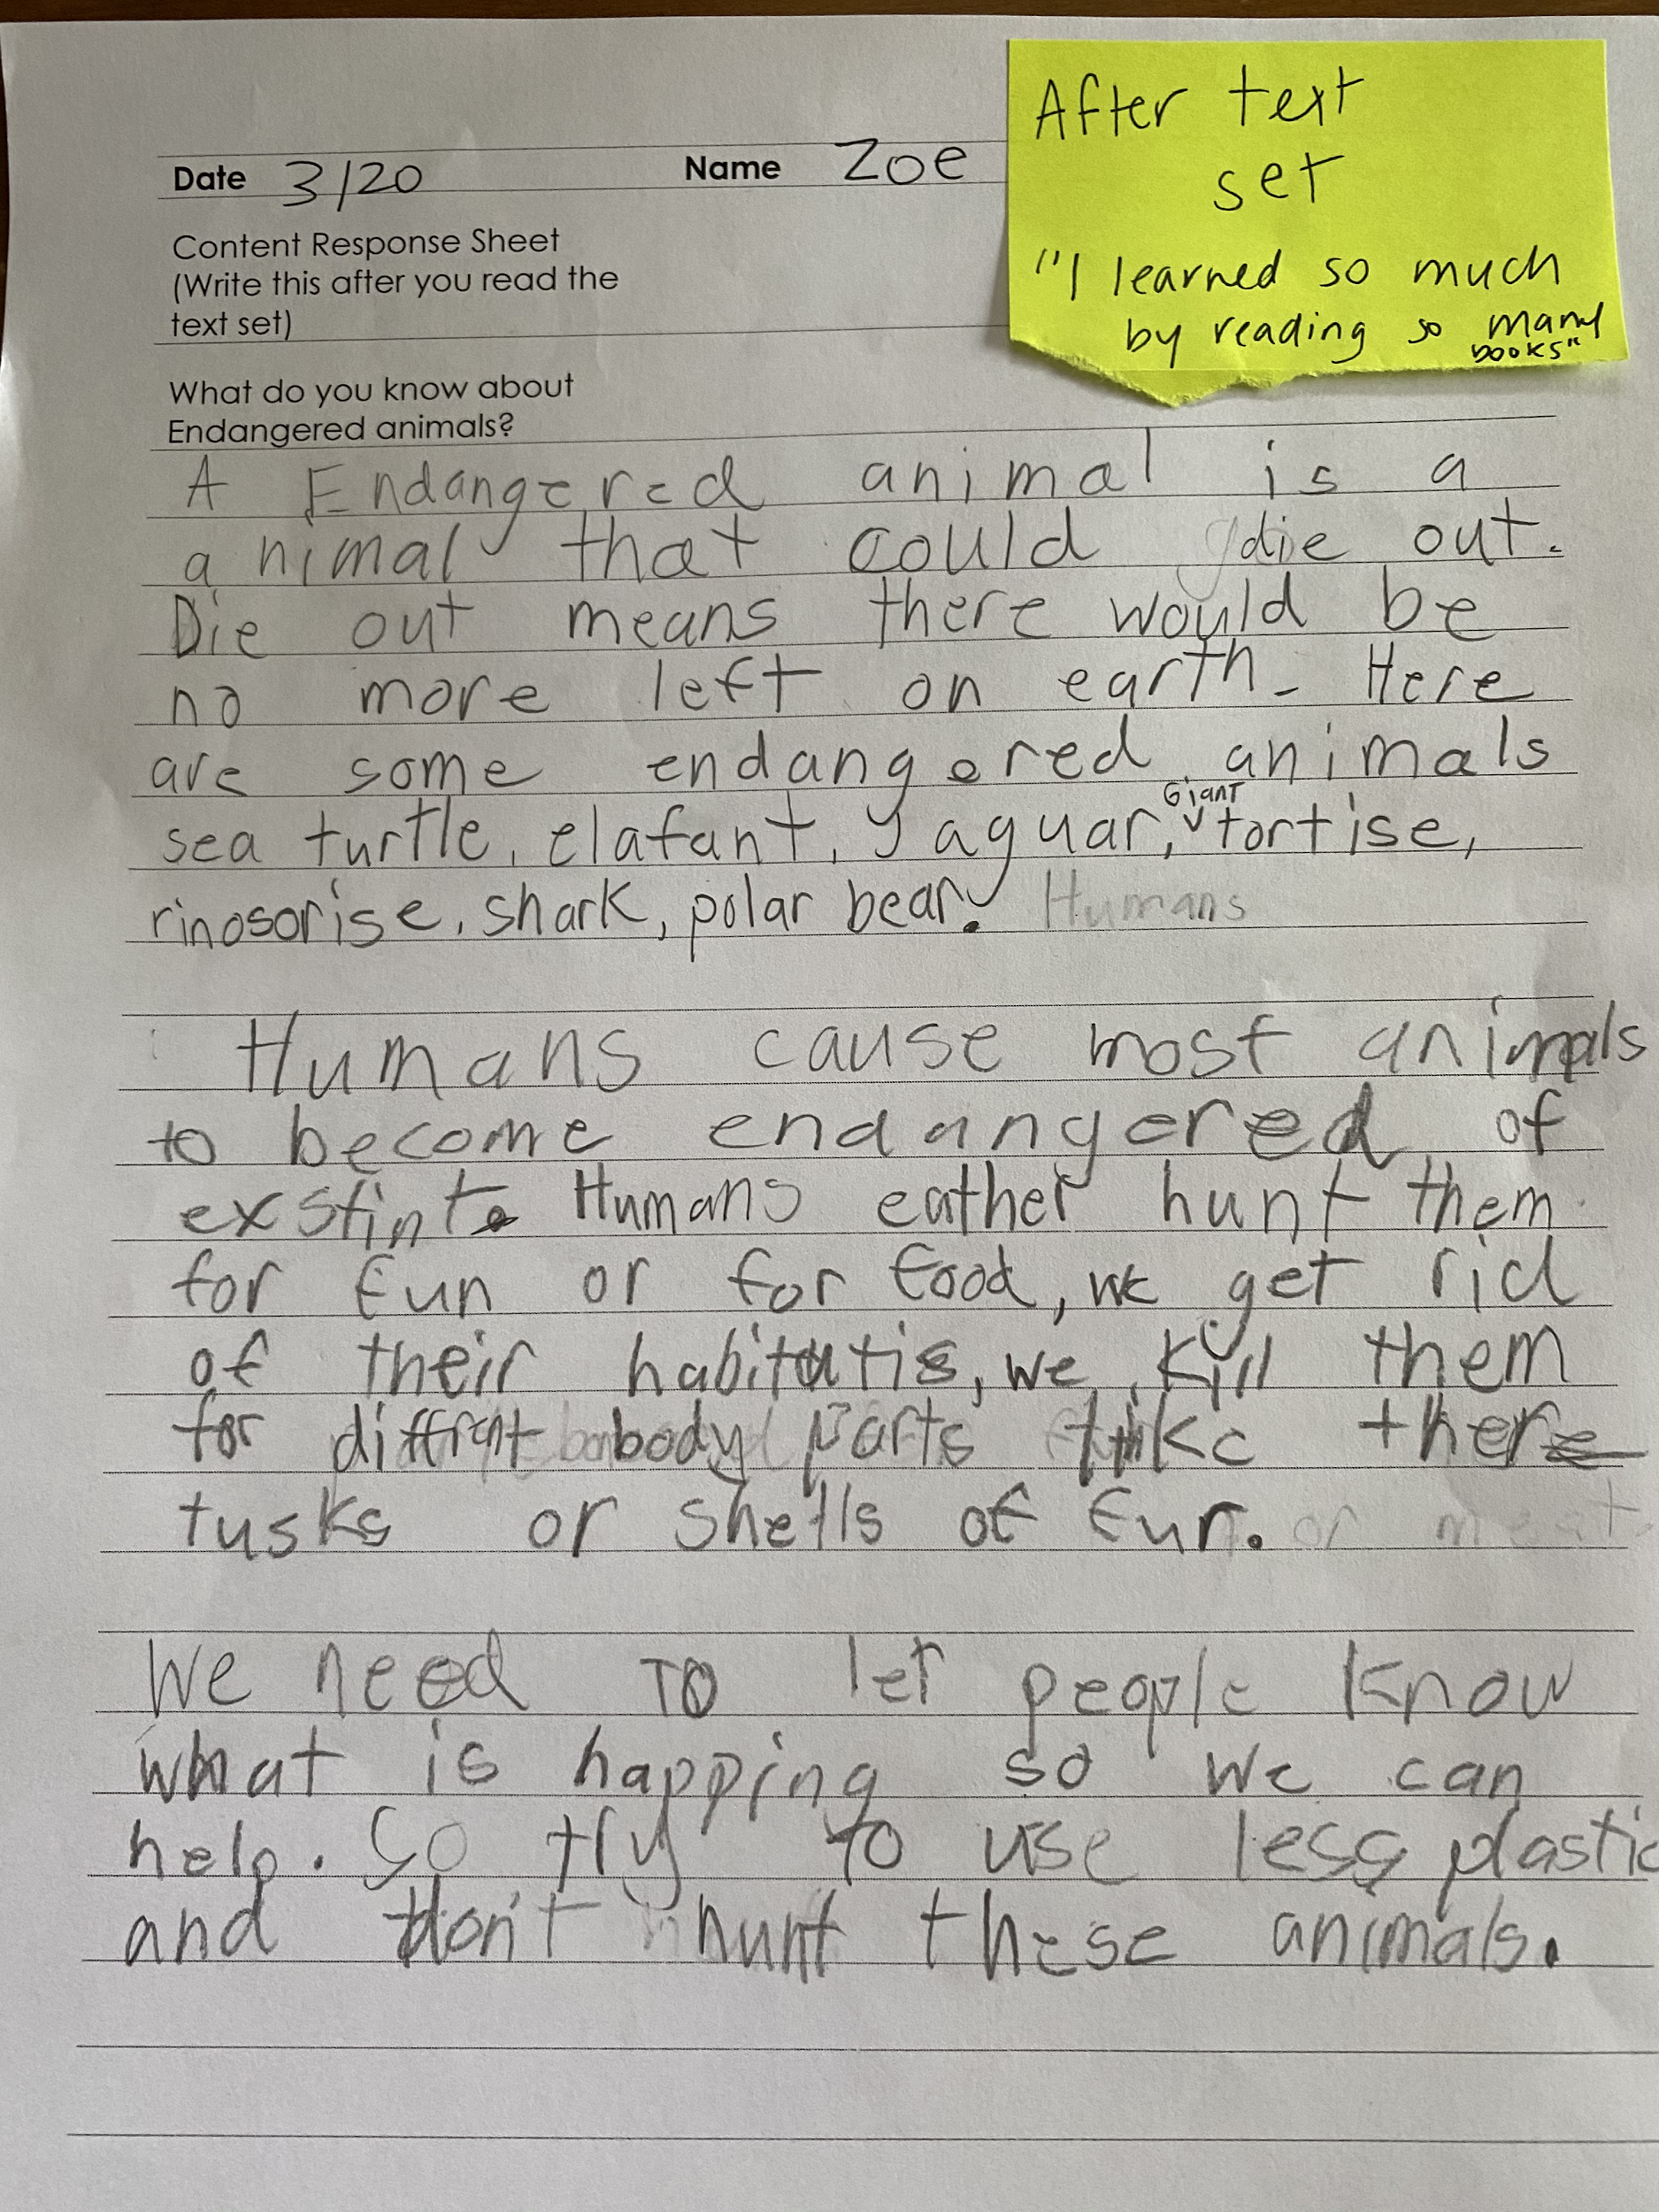 After text
set
"I learned so much
by reading so many
books"
Date 3/20 Name Zoe
Content Response Sheet
(Write this after you read the
text set)
What do you know about
Endangered animals?
A Endangered animal is a
animal that could die out.
Die out means there would be
no more left on earth. Here
are some endangered animals
sea turtle, elafant, yaguar, Giant tortise,
rinosorise, shark, polar bear. Humans
Humans cause most animals
to become endangered of
exstint. Humans eather hunt them
for fun or for food, we get rid
of their habitatis, we kill them
for diffrent body parts like there
tusks or shells of fur. or meat.
We need to let people know
what is happing so we can
help. So try to use less plastic
and don't hunt these animals.